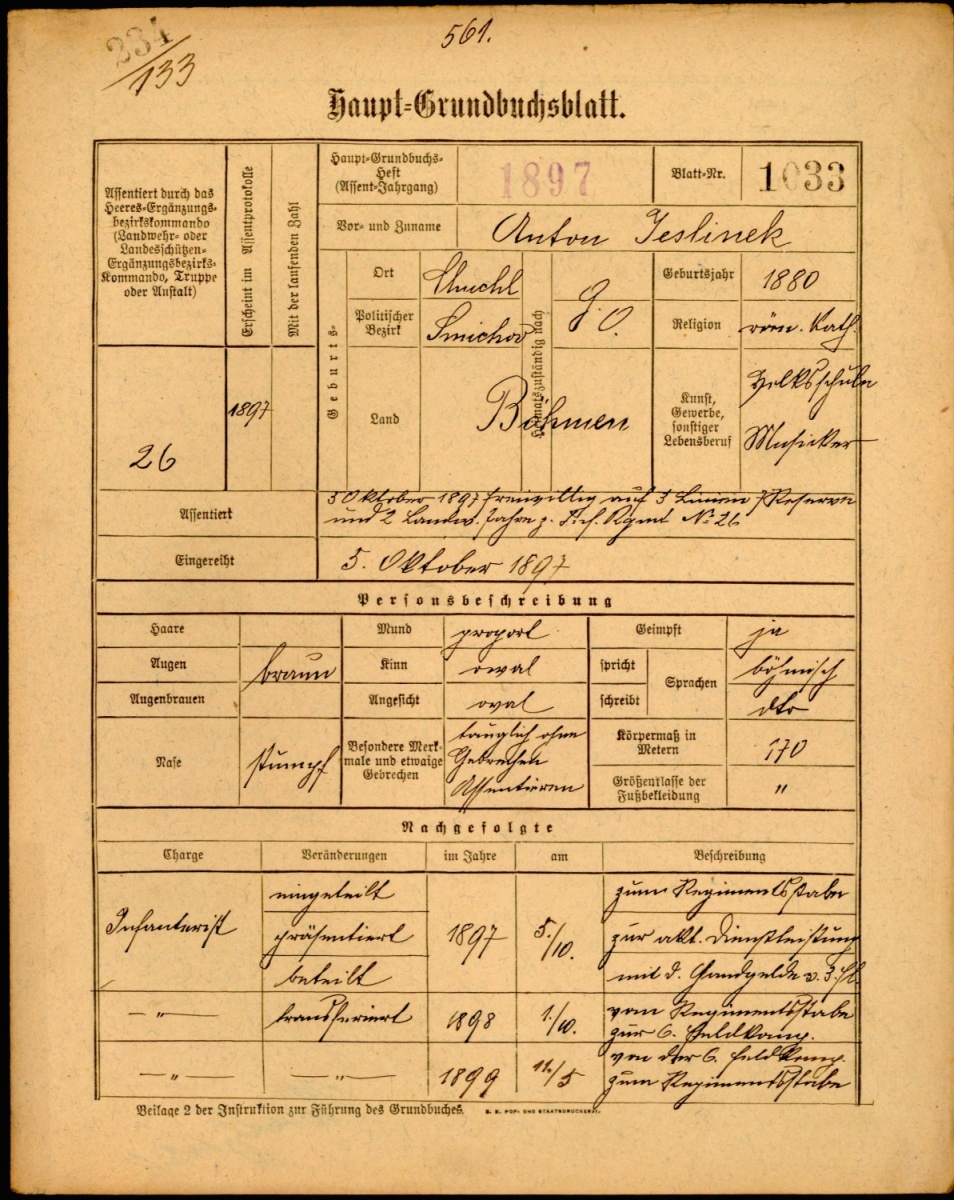 334
/133
561.
Haupt-Grundbuchsblatt.
Assentiert durch das
Heeres-Ergänzungs-
bezirkskommando
(Landwehr- oder
Landesschützen-
Ergänzungsbezirks-
Kommando, Truppe
oder Anstalt)
Erscheint im Assentprotokolle
Mit der laufenden Zahl
26
1897
Haupt-Grundbuchs-
Heft
(Assent-Jahrgang)
1897
Blatt-Nr.
1033
Vor- und Zuname
Anton Jeslinek
Geburts-
Ort
Politischer
Bezirk
Smichov
Land
Böhmen
Heimatszuständig nach
Geburtsjahr
1880
Religion
röm. kath.
Kunst,
Gewerbe,
sonstiger
Lebensberuf
Volksschule
Musicker
Assentiert
5 Oktober 1897 freiwillig auf 3 Linien 7 Reserve
und 2 Landw. Jahre z. Inf. Rgmt No 26
Eingereiht
5. Oktober 1897
Personsbeschreibung
Haare
Augen
Augenbrauen
braun
Nase
stumpf
Mund
proport
Kinn
oval
Angesicht
oval
Besondere Merk-
male und etwaige
Gebrechen
tauglich ohne
Gebrechen
Assentieren
Geimpft
ja
spricht
schreibt
Sprachen
böhmisch
dto
Körpermaß in
Metern
170
Größenklasse der
Fußbekleidung
"
Nachgefolgte
Charge Veränderungen im Jahre am Beschreibung
Infanterist
eingeteilt
präsentiert
beteilt
1897
5./10.
zum Regimentsstabe
zur akt. Dienstleistung
mit d. Handgelde v. 3. fl.
— " — transferiert 1898 1./10.
vom Regimentsstabe
zur 6. Feldkomp.
— " — — " — 1899 11./5
von der 6. Feldkomp.
zum Regimentsstabe
Beilage 2 der Instruktion zur Führung des Grundbuches.
K. K. HOF- UND STAATSDRUCKEREI.